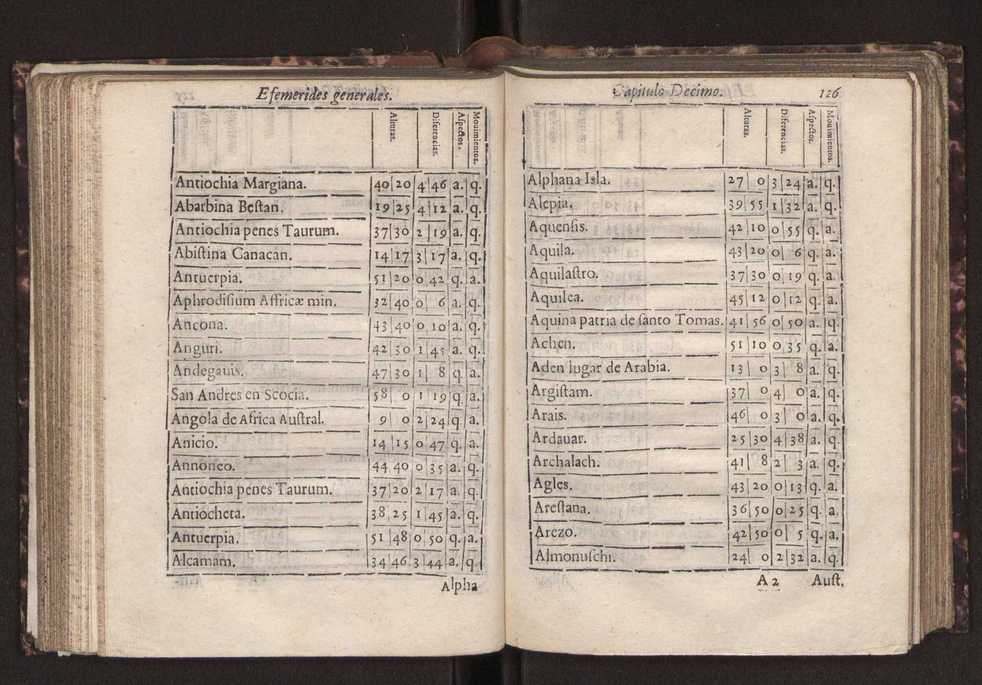 Efemerides generales.
Alturas. Diferencias. Aspectos. Mouimientos.
Antiochia Margiana. 40 20 4 46 a. q.
Abarbina Bestan. 19 25 4 12 a. q.
Antiochia penes Taurum. 37 30 2 19 a. q.
Abistina Canacan. 14 17 3 17 a. q.
Antuerpia. 51 20 0 42 q. a.
Aphrodisium Affricæ min. 32 40 0 6 a. q.
Ancona. 43 40 0 10 a. q.
Anguri. 42 30 1 45 a. q.
Andegauis. 47 30 1 8 q a.
San Andres en Scocia. 58 0 1 19 q a.
Angola de Africa Austral. 9 0 2 24 q a.
Anicio. 14 15 0 47 q. a.
Annoneo. 44 40 0 35 a. q.
Antiochia penes Taurum. 37 20 2 17 a. q.
Antiocheta. 38 25 1 45 a. q.
Antuerpia. 51 48 0 50 q. a.
Alcamam. 34 46 3 44 a. q.
Alpha
Capitulo Decimo. 126
Alturas. Diferencias. Aspectos. Mouimientos.
Alphana Isla. 27 0 3 24 a. q.
Alepia. 39 55 1 32 a. q.
Aquensis. 42 10 0 55 q. a.
Aquila. 43 20 0 6 q. a.
Aquilastro. 37 30 0 19 q. a.
Aquilea. 45 12 0 12 q. a.
Aquina patria de santo Tomas. 41 56 0 50 a. q.
Achen. 51 10 0 35 q. a.
Aden lugar de Arabia. 13 0 3 8 a. q.
Argistam. 37 0 4 0 a. q.
Arais. 46 0 3 0 a. q.
Ardauar. 25 30 4 38 a. q.
Archalach. 41 8 2 3 a. q.
Agles. 43 20 0 13 q. a.
Arestana. 36 50 0 25 q. a.
Arezo. 42 50 0 5 q. a.
Almonuschi. 24 0 2 32 a. q.
A 2 Aust.